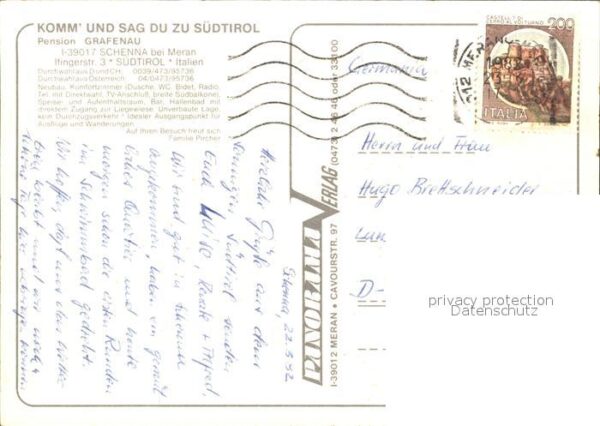 KOMM' UND SAG DU ZU SÜDTIROL
Pension GRAFENAU
I-39017 SCHENNA bei Meran
Ifingerstr. 3 * SÜDTIROL * Italien
Durchwahl aus D und CH: 0039/473/95736
Durchwahl aus Österreich: 04/0473/95736
Neubau, Komfortzimmer (Dusche, WC, Bidet, Radio,
Tel. mit Direktwahl, TV-Anschluß, breite Südbalkone),
Speise- und Aufenthaltsraum, Bar, Hallenbad mit
direkten Zugang zur Liegewiese. Unverbaute Lage,
kein Durchzugsverkehr * Idealer Ausgangspunkt für
Ausflüge und Wanderungen.
Auf Ihren Besuch freut sich
Familie Pircher
Schenna, 22.5.82
Herzliche Grüße aus dem
sonnigen Südtirol senden
Euch
Wir sind gut in Schenna
angekommen, haben ein gemüt-
liches Quartier und heute
morgen schon die ersten Runden
im Schwimmbad gedreht.
Wir hoffen, daß uns das Wetter
treu bleibt und wir noch
schöne Tage hier verbringen können
PANORAMA VERLAG
I-39012 MERAN • CAVOURSTR. 97 (0473) 2 46 46 oder 33100
Germania
CASTELLO DI
CERRO AL VOLTURNO
200
ITALIA
MERANO
Herrn und Frau
Hugo Brettschneider
D-
privacy protection
Datenschutz